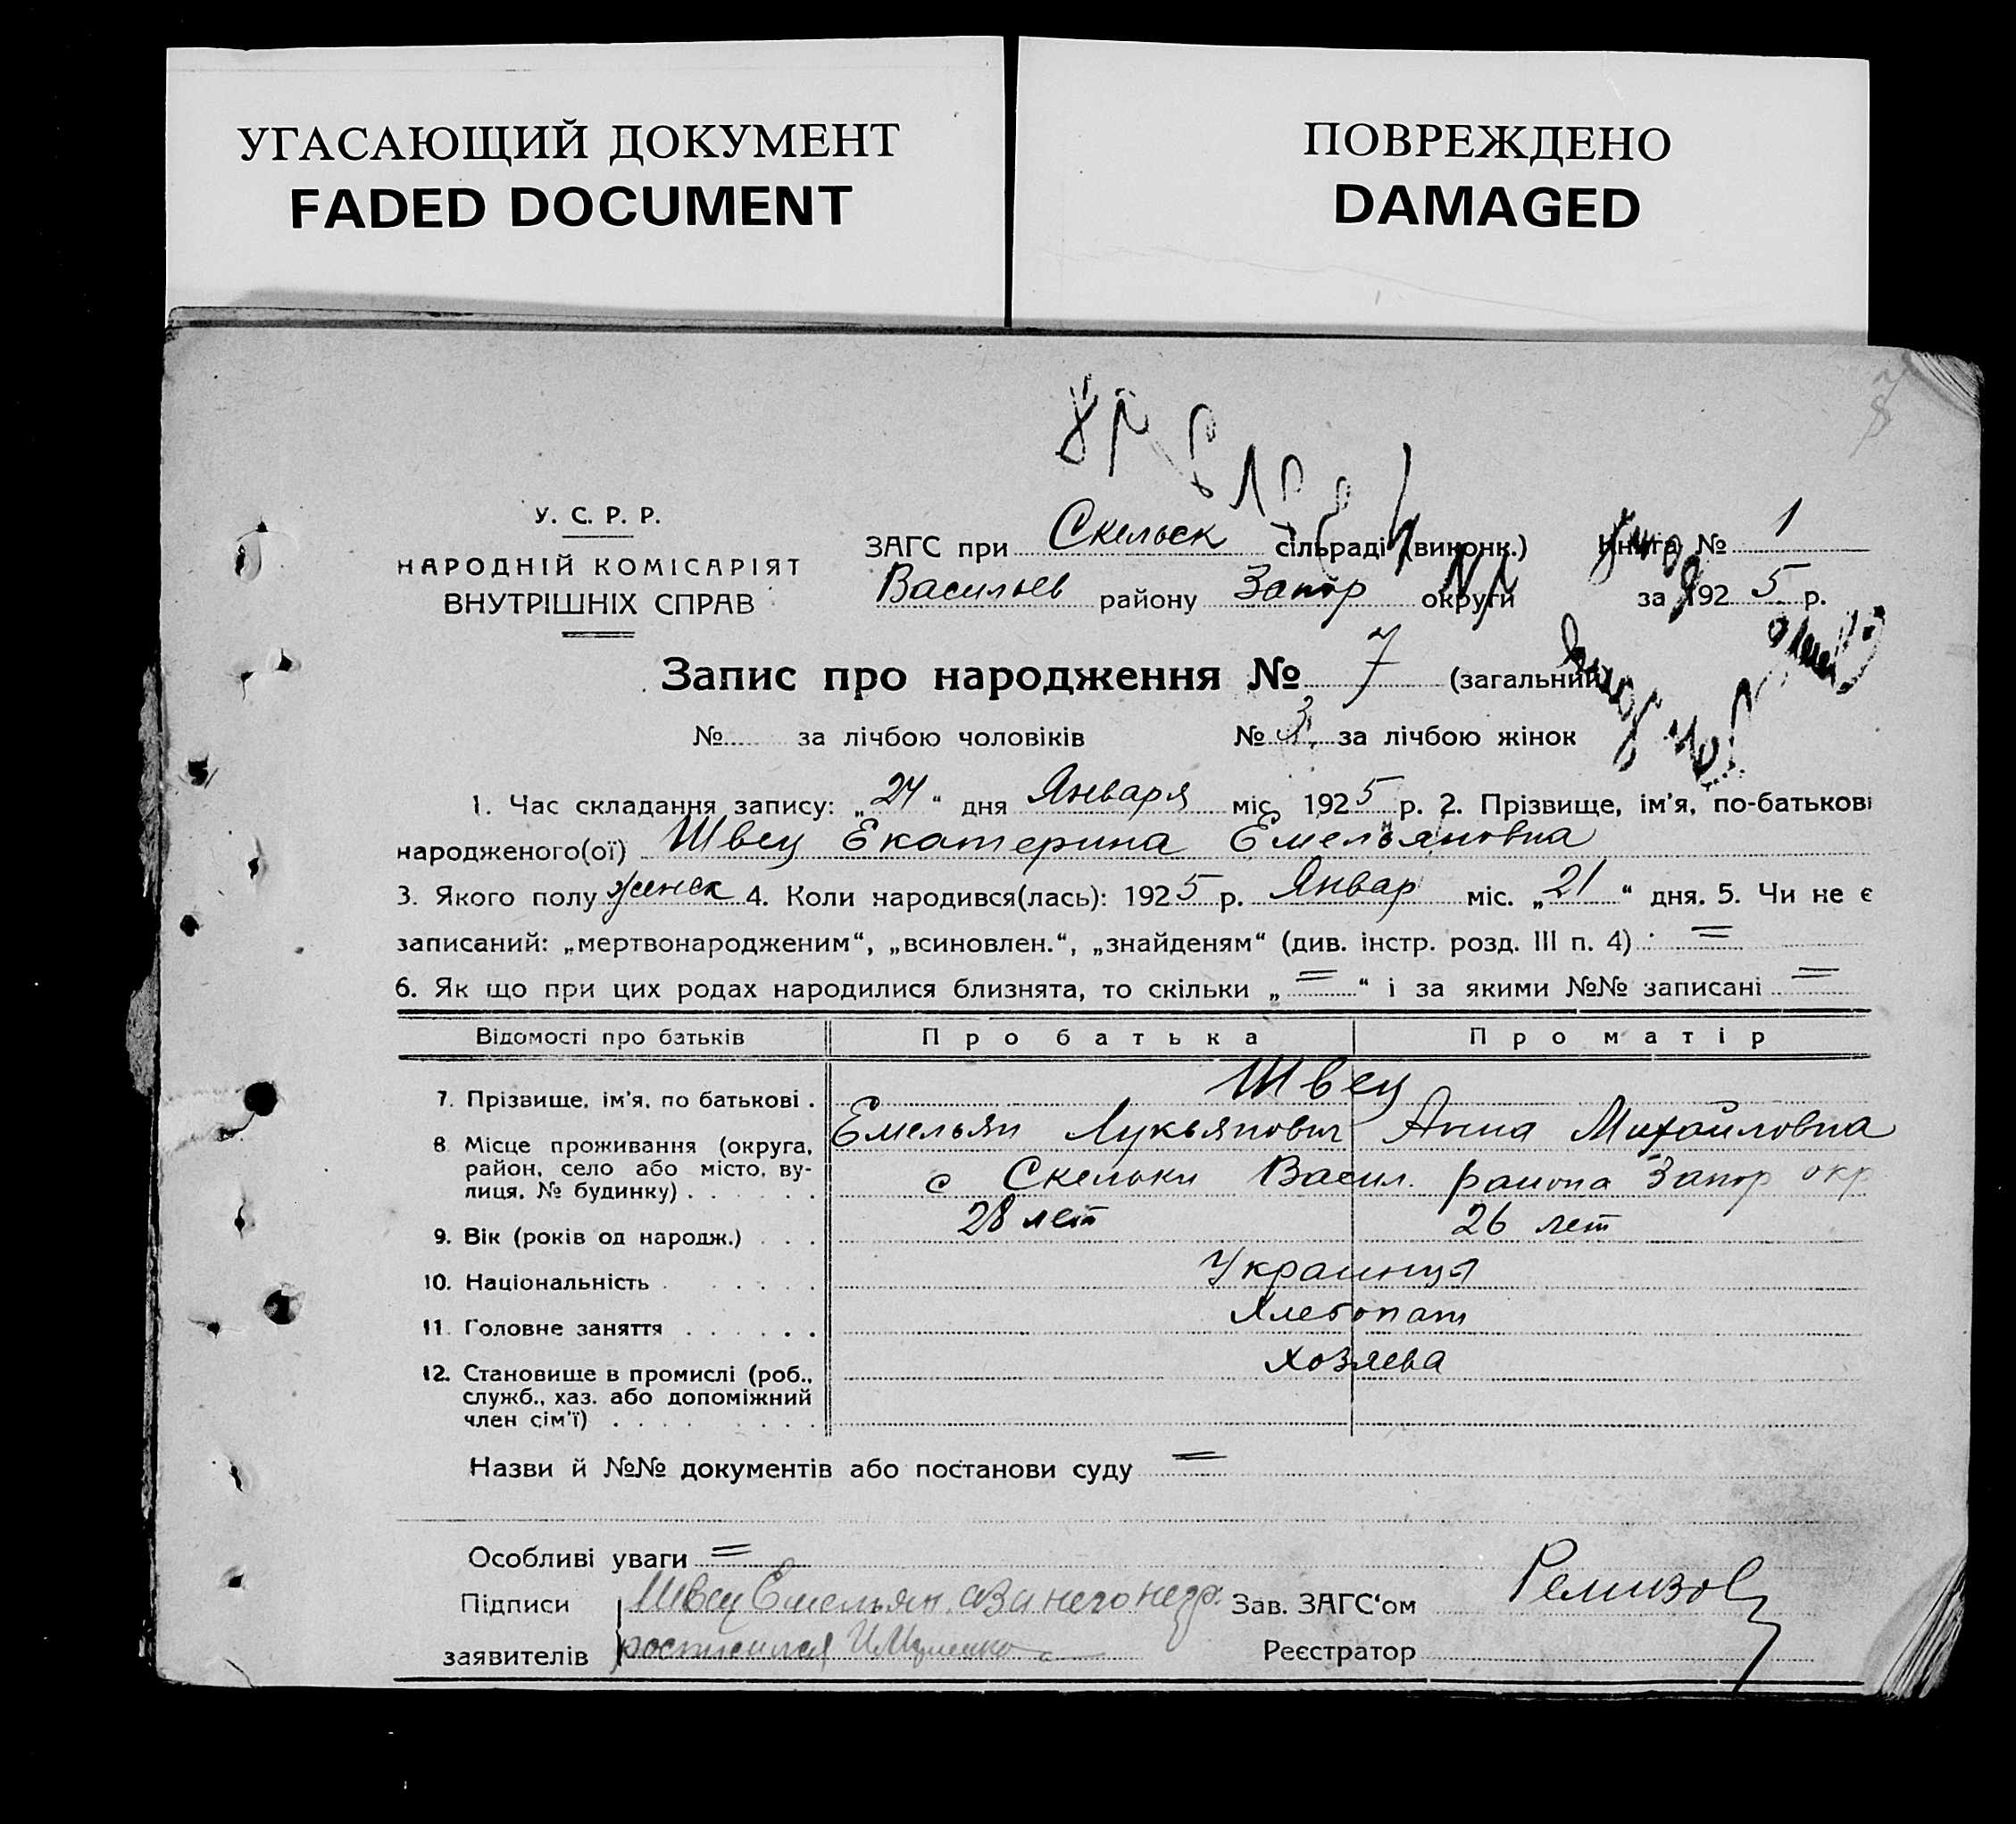 УГАСАЮЩИЙ ДОКУМЕНТ
FADED DOCUMENT
ПОВРЕЖДЕНО
DAMAGED
У. С. Р. Р.
НАРОДНІЙ КОМІСАРІЯТ
ВНУТРІШНІХ СПРАВ
ЗАГС при Скельск сільраді (виконк.) Книга № 1
Васильев району Запор округи за 1925 р.
Запис про народження № 7 (загальний)
№ за лічбою чоловіків № 3 за лічбою жінок
1. Час складання запису: „24“ дня Января міс. 1925 р. 2. Прізвище, ім'я, по-батькові
народженого(ої) Швец Екатерина Емельяновна
3. Якого полу женск 4. Коли народився(лась): 1925 р. Январ міс. „21“ дня. 5. Чи не є
записаний: „мертвонародженим“, „всиновлен.“, „знайденям“ (див. інстр. розд. III п. 4) =
6. Як що при цих родах народилися близнята, то скільки „=“ і за якими №№ записані =
Відомості про батьків Про батька Про матір
7. Прізвище, ім'я, по батькові . Швец
Емельян Лукьянович Анна Михайловна
8 Місце проживання (округа,
район, село або місто, ву-
лиця, № будинку) . . . . . . с Скельки Васил. района Запор окр
9. Вік (років од народж.) . . . 28 лет 26 лет
10. Національність . . . . . Украинцы
11. Головне заняття . . . . . . Хлебопаш
12. Становище в промислі (роб.,
служб., хаз. або допоміжний
член сім'ї) . . . . . . . . хозяева
Назви й №№ документів або постанови суду =
Особливі уваги =
Підписи Швец Емельян а за него негр. Зав. ЗАГС'ом Ремизов
заявителів росписился Реєстратор